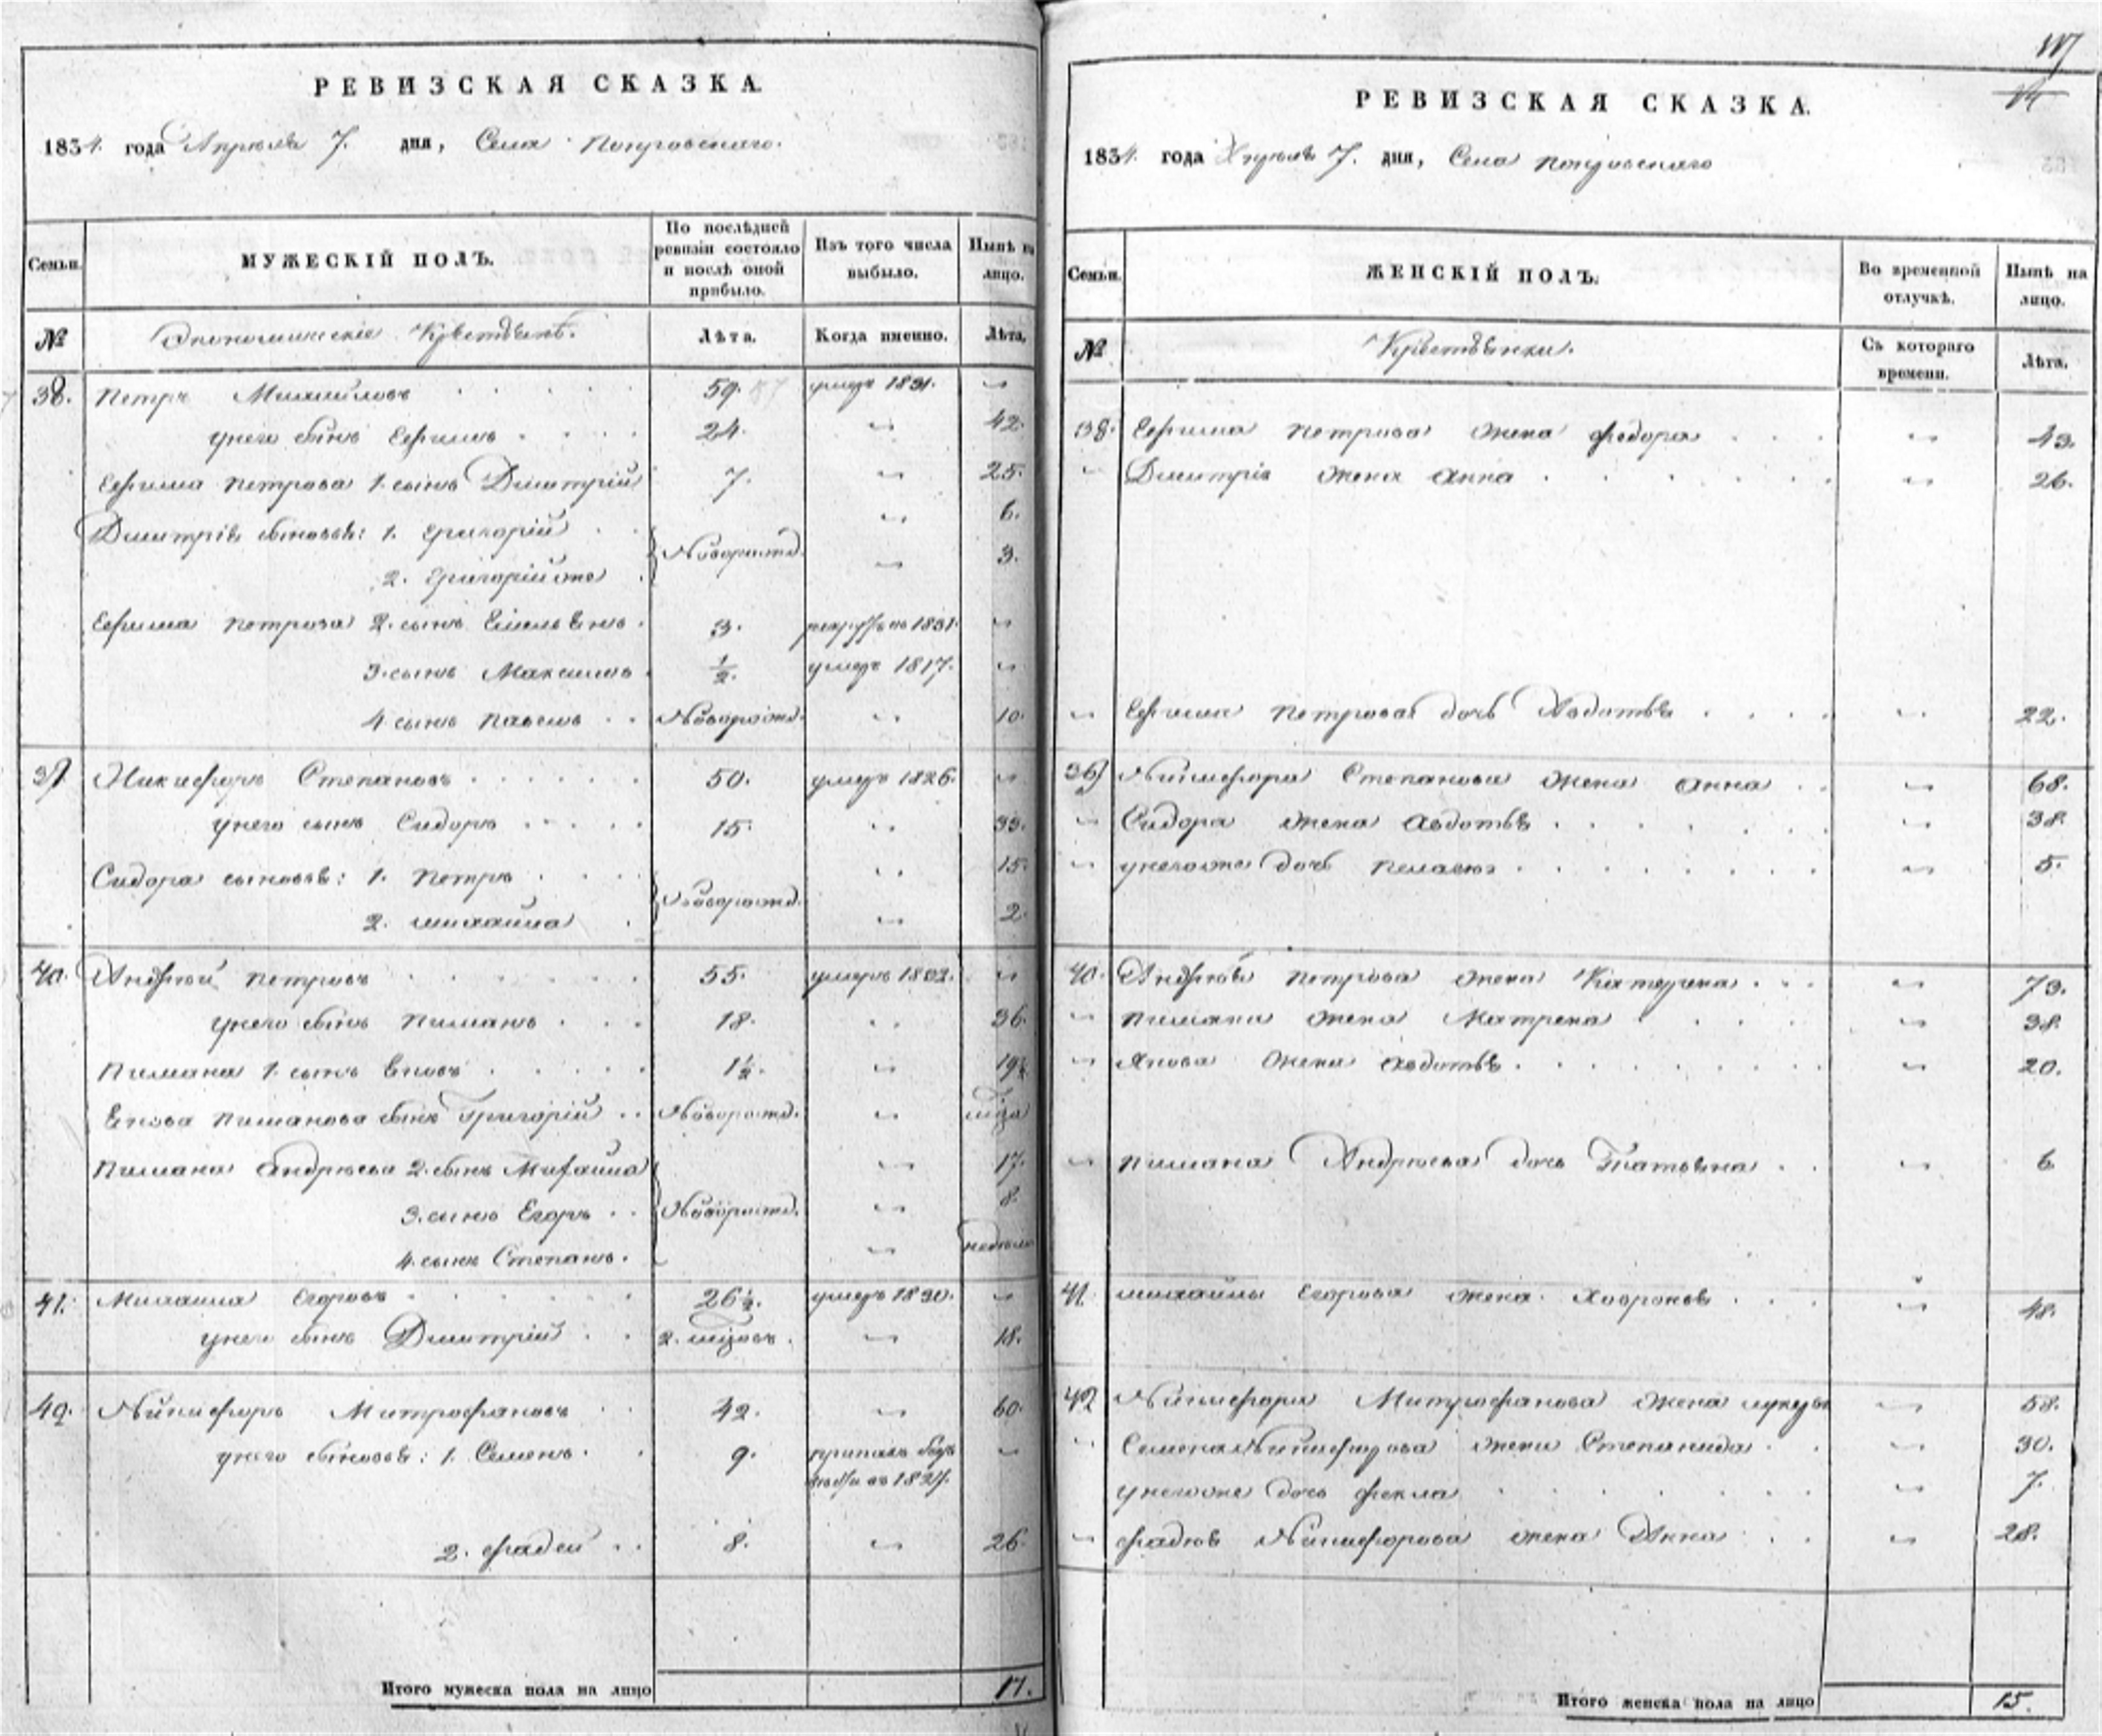 РЕВИЗСКАЯ СКАЗКА.
1834. года Апреля 7. дня, Села Покровскаго.
Семьи.
МУЖЕСКІЙ ПОЛЪ.
По послѣдней ревизіи состояло и послѣ оной прибыло.
Изъ того числа выбыло.
Нынѣ на лицо.
№
Экономическіе Крестьянѣ.
Лѣта.
Когда именно.
Лѣта.
38. Петръ Михайловъ 59. умеръ 1831. "
унего сынъ Ефимъ 24. " 42.
Ефима Петрова 1. сынъ Дмитрій 7. " 25.
Дмитрія сыновья: 1. Григорій " 6.
Новорожд.
2. Григорійже " 3.
Ефима Петрова 2. сынъ Емельянъ 3. 1831. "
3. сынъ Максимъ ½. умеръ 1817. "
4 сынъ Павелъ Новорожд. " 10.
39 Никифоръ Степановъ 50. умеръ 1826. "
унего сынъ Сидоръ 15. " 33.
Сидора сыновья: 1. Петръ " 15.
Новорожд.
2. михайла " 2
40. Андрей Петровъ 55. умеръ "
унего сынъ Пиманъ 18. " 36.
Пимана 1. сынъ Яковъ 1½. " 19½
Якова Пиманова сынъ Григорій Новорожд. "
Пимана Андреева 2. сынъ Михайла " 17.
3. сынъ Егоръ Новорожд. " 8.
4. сынъ Степанъ. " недѣля
41. Михайла Егоровъ 26½. умеръ 1830. "
унего сынъ Дмитрій 2. " 18.
42. Никифоръ Митрофановъ 42. " 60.
унего сыновья: 1. Семенъ. 9. "
2. фадей 8. " 26.
Итого мужеска пола на лицо 17.
РЕВИЗСКАЯ СКАЗКА.
1834. года Апреля 7. дня, Села Покровскаго
Семьи.
ЖЕНСКІЙ ПОЛЪ.
Во временной отлучкѣ.
Нынѣ на лицо.
№
Крестьянки.
Съ котораго времени.
Лѣта.
38. Ефима Петрова жена федора " 43.
" Дмитрія жена Анна " 26.
" Ефима Петрова дочь Авдотья " 22.
39 Никифора Степанова жена анна " 68.
" Сидора жена авдотья " 38.
" унегоже дочь Пелагея " 5.
40. Андрея Петрова жена Катерена " 73.
" Пимана жена Матрена " 38.
" Якова жена авдотья " 20.
" Пимана Андреева дочь Татьяна " 6
41. михайлы Егорова жена Ховронья " 48.
42 Никифора Митрофанова жена " 58.
" Семена Никифорова жена Степанида " 30.
унегоже дочь фекла " 7.
" фадея Никифорова жена Анна " 28.
Итого женска пола на лицо 15.